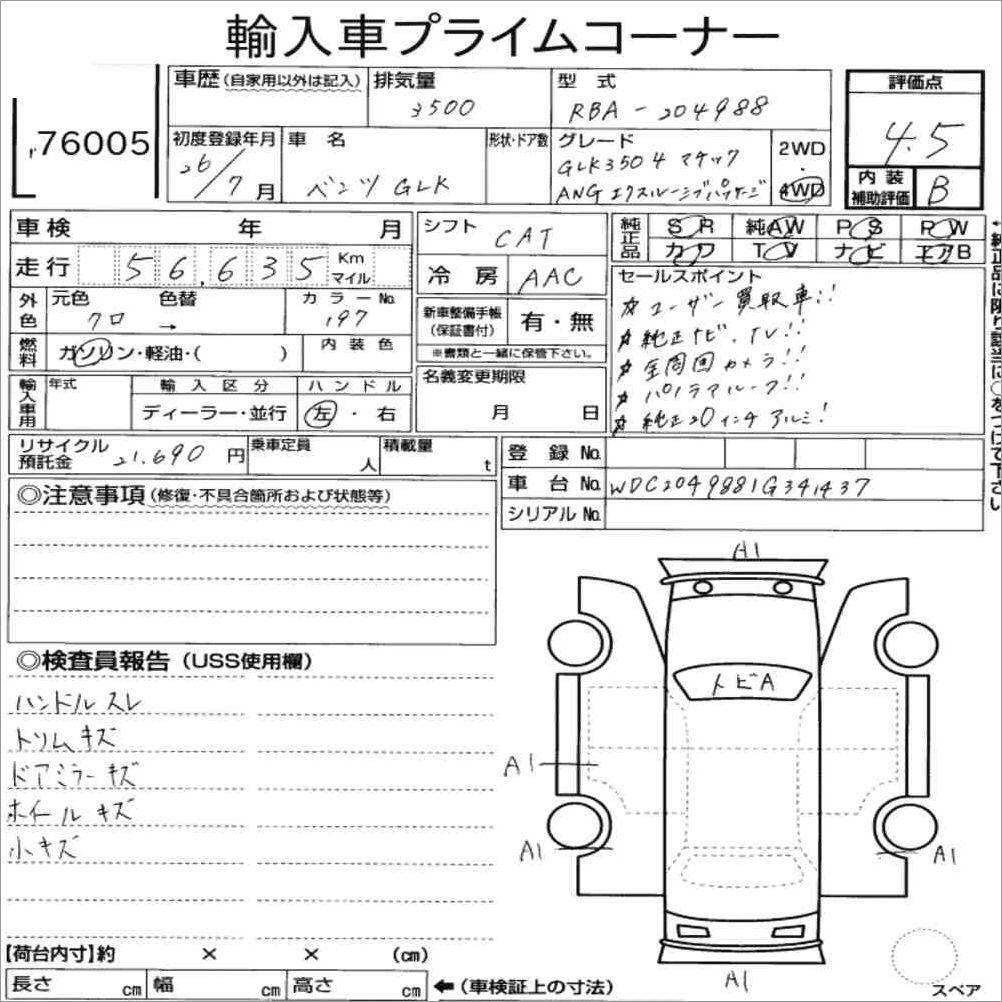 輸入車プライムコーナー
76005
車歴(自家用以外は記入) 排気量 型式 評価点
3500 RBA-204988 4.5
初度登録年月 車名 形状・ドア数 グレード 2WD・4WD
26/7月 ベンツ GLK GLK350 4マチック
ANGエクスルーシブパッケージ
内装補助評価 B
車検 年 月 シフト CAT 純正品 SR 純AW PS PW
カワ TV ナビ エアB
走行 56,635 Km マイル 冷房 AAC
セールスポイント
☆ユーザー買取車!!
☆純正ナビ、TV!!
☆全周囲カメラ!!
☆パノラマルーフ!!
☆純正20インチアルミ!
←純正品に限り該当に○をつけて下さい
外色 元色 色替 カラーNo.
クロ → 197
新車整備手帳(保証書付) 有・無
※書類と一緒に保管下さい。
燃料 ガソリン・軽油・( ) 内装色
名義変更期限 月 日
輸入車用 年式 輸入区分 ハンドル
ディーラー・並行 左・右
リサイクル預託金 21,690円 乗車定員 人 積載量 t
登録No.
車台No. WDC2049881G341437
シリアルNo.
◎注意事項(修復・不具合箇所および状態等)
◎検査員報告(USS使用欄)
ハンドルスレ
トリムキズ
ドアミラーキズ
ホイールキズ
小キズ
A1
トビA
A1
A1
A1
A1
スペア
【荷台内寸】約 × × (cm)
長さ cm 幅 cm 高さ cm ←(車検証上の寸法)